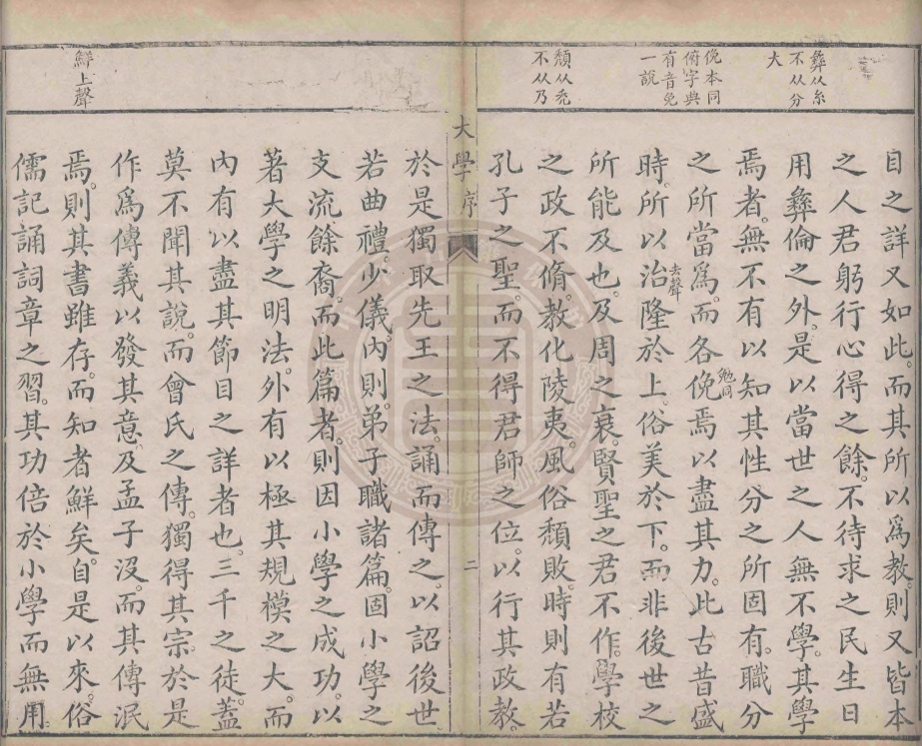 彝从糸
不从分
大
俛本同
俯字典
有音免
一說
頹从禿
不从乃
目之詳又如此。而其所以爲教。則又皆本
之人君躬行心得之餘。不待求之民生日
用彝倫之外。是以當世之人無不學。其學
焉者。無不有以知其性分之所固有。職分
之所當爲。而各俛勉同焉以盡其力。此古昔盛
時。所以治去聲隆於上。俗美於下。而非後世之
所能及也。及周之衰。賢聖之君不作。學校
之政不脩。教化陵夷。風俗頹敗。時則有若
孔子之聖。而不得君師之位。以行其政教。
大學序
二
鮮上聲
於是獨取先王之法。誦而傳之。以詔後世
若曲禮。少儀。內則。弟子職諸篇。固小學之
支流餘裔。而此篇者。則因小學之成功。以
著大學之明法。外有以極其規模之大。而
內有以盡其節目之詳者也。三千之徒。蓋
莫不聞其說。而曾氏之傳。獨得其宗。於是
作爲傳義以發其意。及孟子沒。而其傳泯
焉。則其書雖存。而知者鮮矣。自是以來。俗
儒記誦詞章之習。其功倍於小學而無用